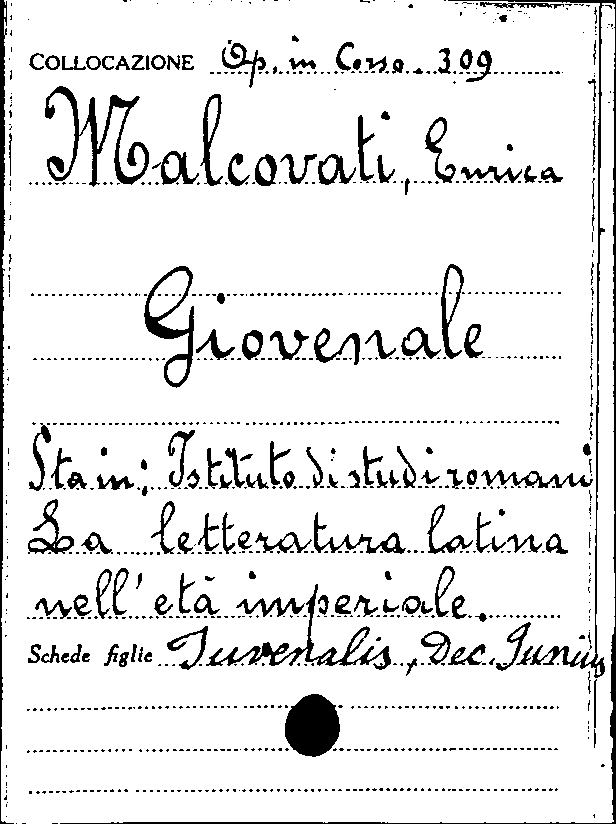 COLLOCAZIONE Op. in Corso. 309
Malcovati, Enrica
Giovenale
Sta in: Istituto di studi romani
La letteratura latina
nell'età imperiale.
Schede figlie Juvenalis, Dec. Junius